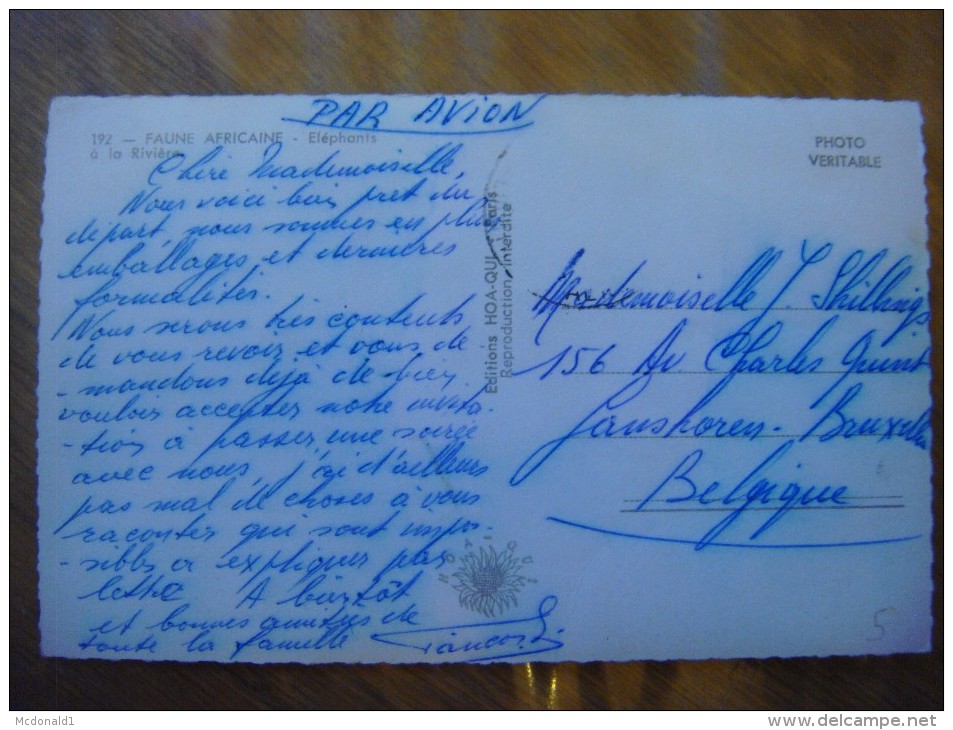 PAR AVION
192 — FAUNE AFRICAINE - Eléphants
à la Rivière
PHOTO
VERITABLE
Chère Mademoiselle,
Nous voici bien pret du
départ, nous sommes en plein
emballages et dernières
formalités.
Nous serons très contents
de vous revoir et vous de-
-mandons déjà de bien
vouloir accepter notre invita-
-tion à passer une soirée
avec nous, j'ai d'ailleurs
pas mal de choses à vous
raconter qui sont impos-
-sibles à expliquer par
lettre A bientôt
et bonnes amitiés de
toute la famille
Editions HOA-QUI - Paris
Reproduction interdite
Mademoiselle J. Shillings
156 Av. Charles Quint
Ganshoren - Bruxelles
Belgique
HOA-QUI
5
Mcdonald1
www.delcampe.net